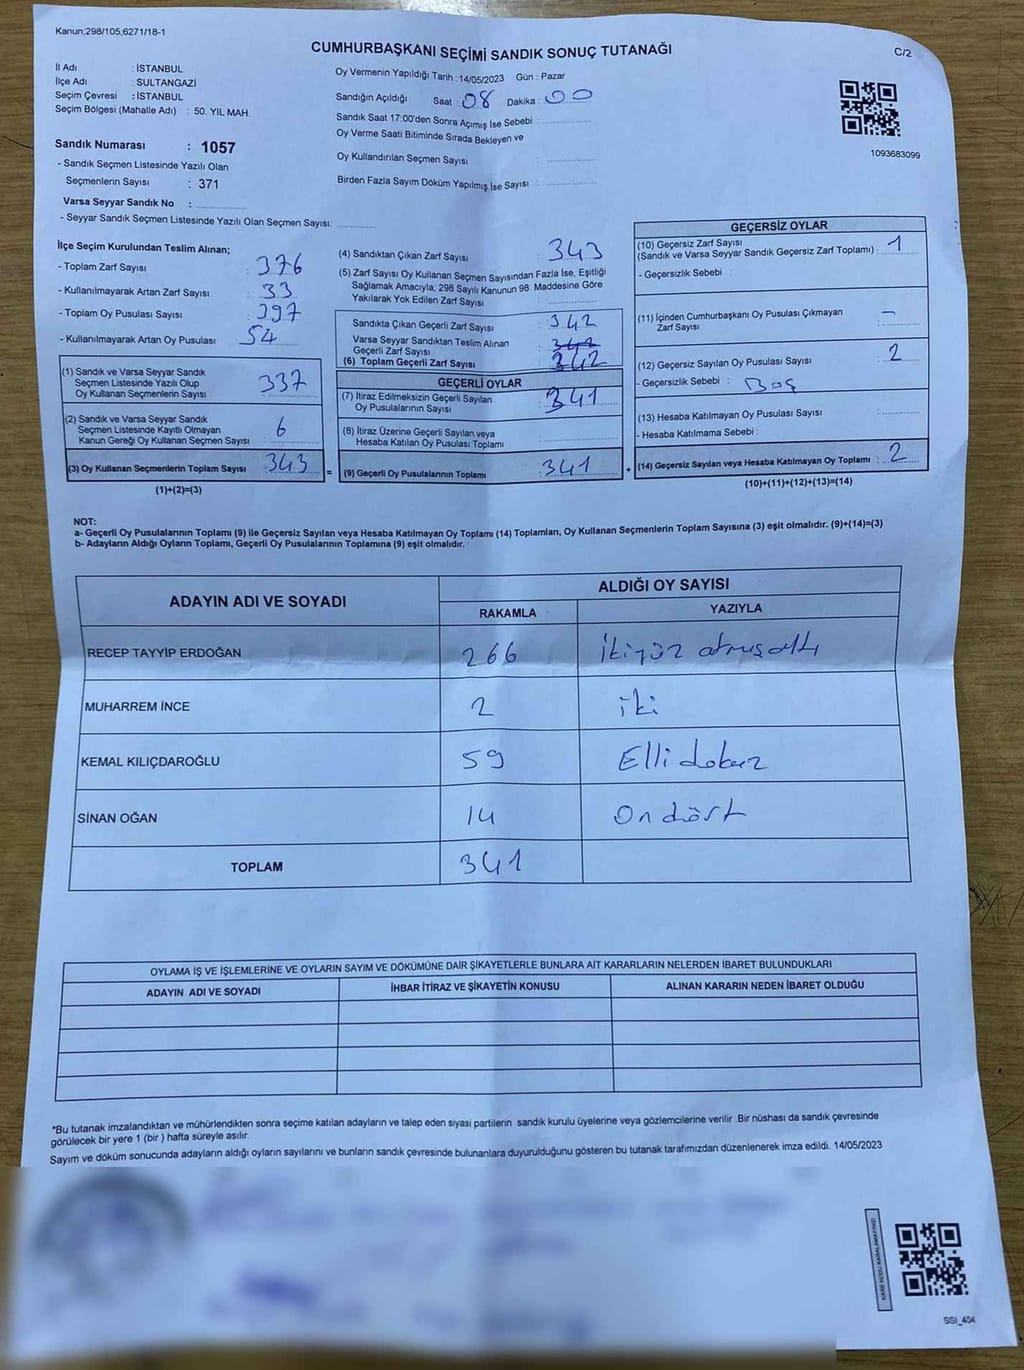 Kanun;298/105;6271/18-1
CUMHURBAŞKANI SEÇİMİ SANDIK SONUÇ TUTANAĞI
C/2
İl Adı : İSTANBUL
İlçe Adı : SULTANGAZİ
Seçim Çevresi : İSTANBUL
Seçim Bölgesi (Mahalle Adı) : 50. YIL MAH.
Sandık Numarası : 1057
- Sandık Seçmen Listesinde Yazılı Olan
Seçmenlerin Sayısı : 371
Varsa Seyyar Sandık No :
- Seyyar Sandık Seçmen Listesinde Yazılı Olan Seçmen Sayısı:
Oy Vermenin Yapıldığı Tarih :14/05/2023 Gün : Pazar
Sandığın Açıldığı Saat : 08 Dakika : 00
Sandık Saat 17:00'den Sonra Açımış İse Sebebi :
Oy Verme Saati Bitiminde Sırada Bekleyen ve
Oy Kullandırılan Seçmen Sayısı :
Birden Fazla Sayım Döküm Yapılmış İse Sayısı :
1093683099
İlçe Seçim Kurulundan Teslim Alınan;
- Toplam Zarf Sayısı : 376
- Kullanılmayarak Artan Zarf Sayısı : 33
- Toplam Oy Pusulası Sayısı : 397
- Kullanılmayarak Artan Oy Pusulası : 54
(1) Sandık ve Varsa Seyyar Sandık
Seçmen Listesinde Yazılı Olup
Oy Kullanan Seçmenlerin Sayısı : 337
(2) Sandık ve Varsa Seyyar Sandık
Seçmen Listesinde Kayıtlı Olmayan
Kanun Gereği Oy Kullanan Seçmen Sayısı : 6
(3) Oy Kullanan Seçmenlerin Toplam Sayısı : 343
(1)+(2)=(3)
(4) Sandıktan Çıkan Zarf Sayısı : 343
(5) Zarf Sayısı Oy Kullanan Seçmen Sayısından Fazla İse, Eşitliği
Sağlamak Amacıyla; 298 Sayılı Kanunun 98. Maddesine Göre
Yakılarak Yok Edilen Zarf Sayısı :
Sandıkta Çıkan Geçerli Zarf Sayısı : 342
Varsa Seyyar Sandıktan Teslim Alınan
Geçerli Zarf Sayısı : 342
(6) Toplam Geçerli Zarf Sayısı : 342
GEÇERLİ OYLAR
(7) İtiraz Edilmeksizin Geçerli Sayılan
Oy Pusulalarının Sayısı : 341
(8) İtiraz Üzerine Geçerli Sayılan veya
Hesaba Katılan Oy Pusulası Toplamı :
= (9) Geçerli Oy Pusulalarının Toplamı : 341 +
GEÇERSİZ OYLAR
(10) Geçersiz Zarf Sayısı
(Sandık ve Varsa Seyyar Sandık Geçersiz Zarf Toplamı) : 1
- Geçersizlik Sebebi :
(11) İçinden Cumhurbaşkanı Oy Pusulası Çıkmayan
Zarf Sayısı : -
(12) Geçersiz Sayılan Oy Pusulası Sayısı : 2
- Geçersizlik Sebebi : Boş
(13) Hesaba Katılmayan Oy Pusulası Sayısı :
- Hesaba Katılmama Sebebi :
(14) Geçersiz Sayılan veya Hesaba Katılmayan Oy Toplamı : 2
(10)+(11)+(12)+(13)=(14)
NOT:
a- Geçerli Oy Pusulalarının Toplamı (9) ile Geçersiz Sayılan veya Hesaba Katılmayan Oy Toplamı (14) Toplamları, Oy Kullanan Seçmenlerin Toplam Sayısına (3) eşit olmalıdır. (9)+(14)=(3)
b- Adayların Aldığı Oyların Toplamı, Geçerli Oy Pusulalarının Toplamına (9) eşit olmalıdır.
ADAYIN ADI VE SOYADI
ALDIĞI OY SAYISI
RAKAMLA YAZIYLA
RECEP TAYYİP ERDOĞAN 266 ikiyüz atmışaltı
MUHARREM İNCE 2 iki
KEMAL KILIÇDAROĞLU 59 Elli dokuz
SİNAN OĞAN 14 On dört
TOPLAM 341
OYLAMA İŞ VE İŞLEMLERİNE VE OYLARIN SAYIM VE DÖKÜMÜNE DAİR ŞİKAYETLERLE BUNLARA AİT KARARLARIN NELERDEN İBARET BULUNDUKLARI
ADAYIN ADI VE SOYADI İHBAR İTİRAZ VE ŞİKAYETİN KONUSU ALINAN KARARIN NEDEN İBARET OLDUĞU
*Bu tutanak imzalandıktan ve mühürlendikten sonra seçime katılan adayların ve talep eden siyasi partilerin sandık kurulu üyelerine veya gözlemcilerine verilir. Bir nüshası da sandık çevresinde
görülecek bir yere 1 (bir ) hafta süreyle asılır.
Sayım ve döküm sonucunda adayların aldığı oyların sayılarını ve bunların sandık çevresinde bulunanlara duyurulduğunu gösteren bu tutanak tarafımızdan düzenlenerek imza edildi. 14/05/2023
SSI_404